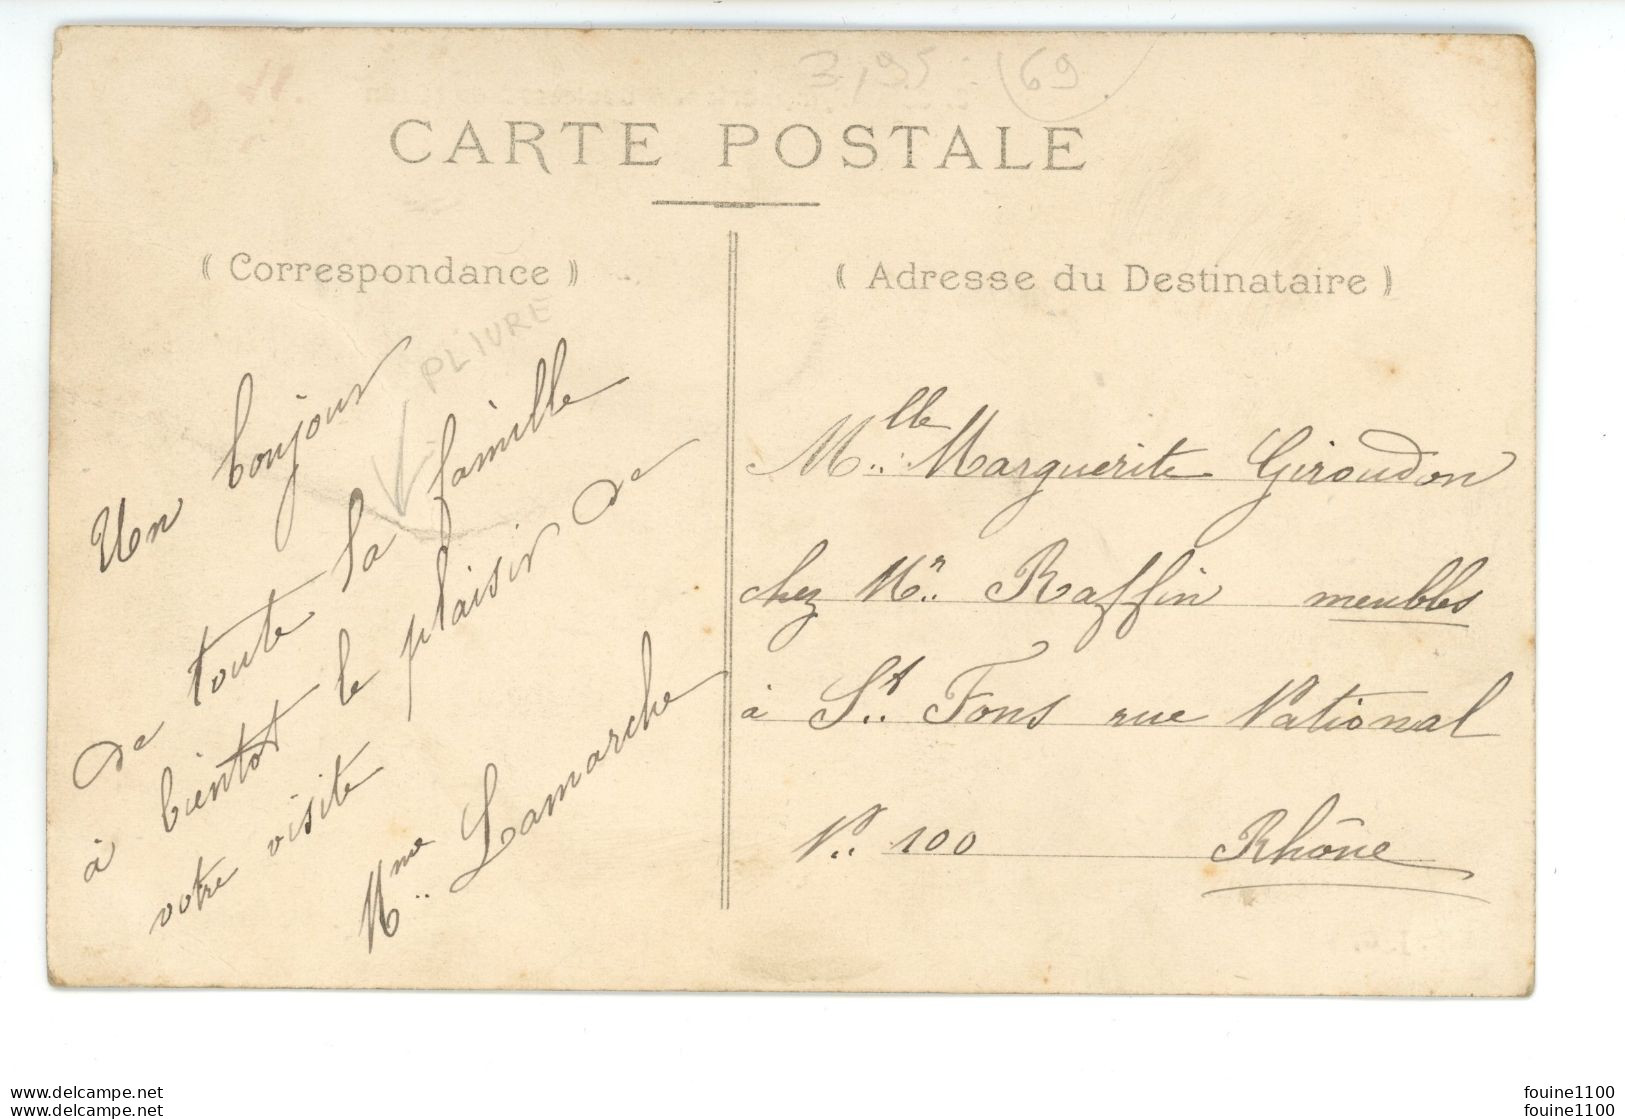 3,95 (69)
CARTE POSTALE
( Correspondance )
( Adresse du Destinataire )
PLIURE
Un bonjour
de toute la famille
à bientot le plaisir de
votre visite
Mme Lamarche
Mlle Marguerite Giroudon
chez Mr Raffin meubles
à St Fons rue National
N. 100 Rhône
www.delcampe.net
www.delcampe.net
fouine1100
fouine1100